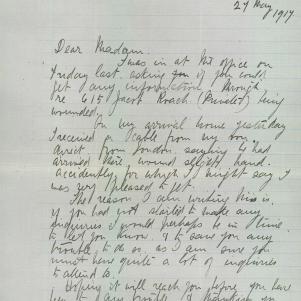 24 May
1917
Dear Madam.
I was in at the office on
Friday last, asking you if you could
get any information, through
re 615 Jacob Roach (Private) being
wounded.
On my arrival home yesterday
I received a cable from my boy
direct from London, saying he had
arrived there, wound slight hand.
accidently, for which I might say I
was very pleased to get.
The reason I am writing this is.
if you had not started to make any
inquiries I would perhaps be in time
to let you know, & to save you any
trouble to do so, as I am sure you
must have quite a lot of inquiries
to attend to.
Hoping it will reach you before you have